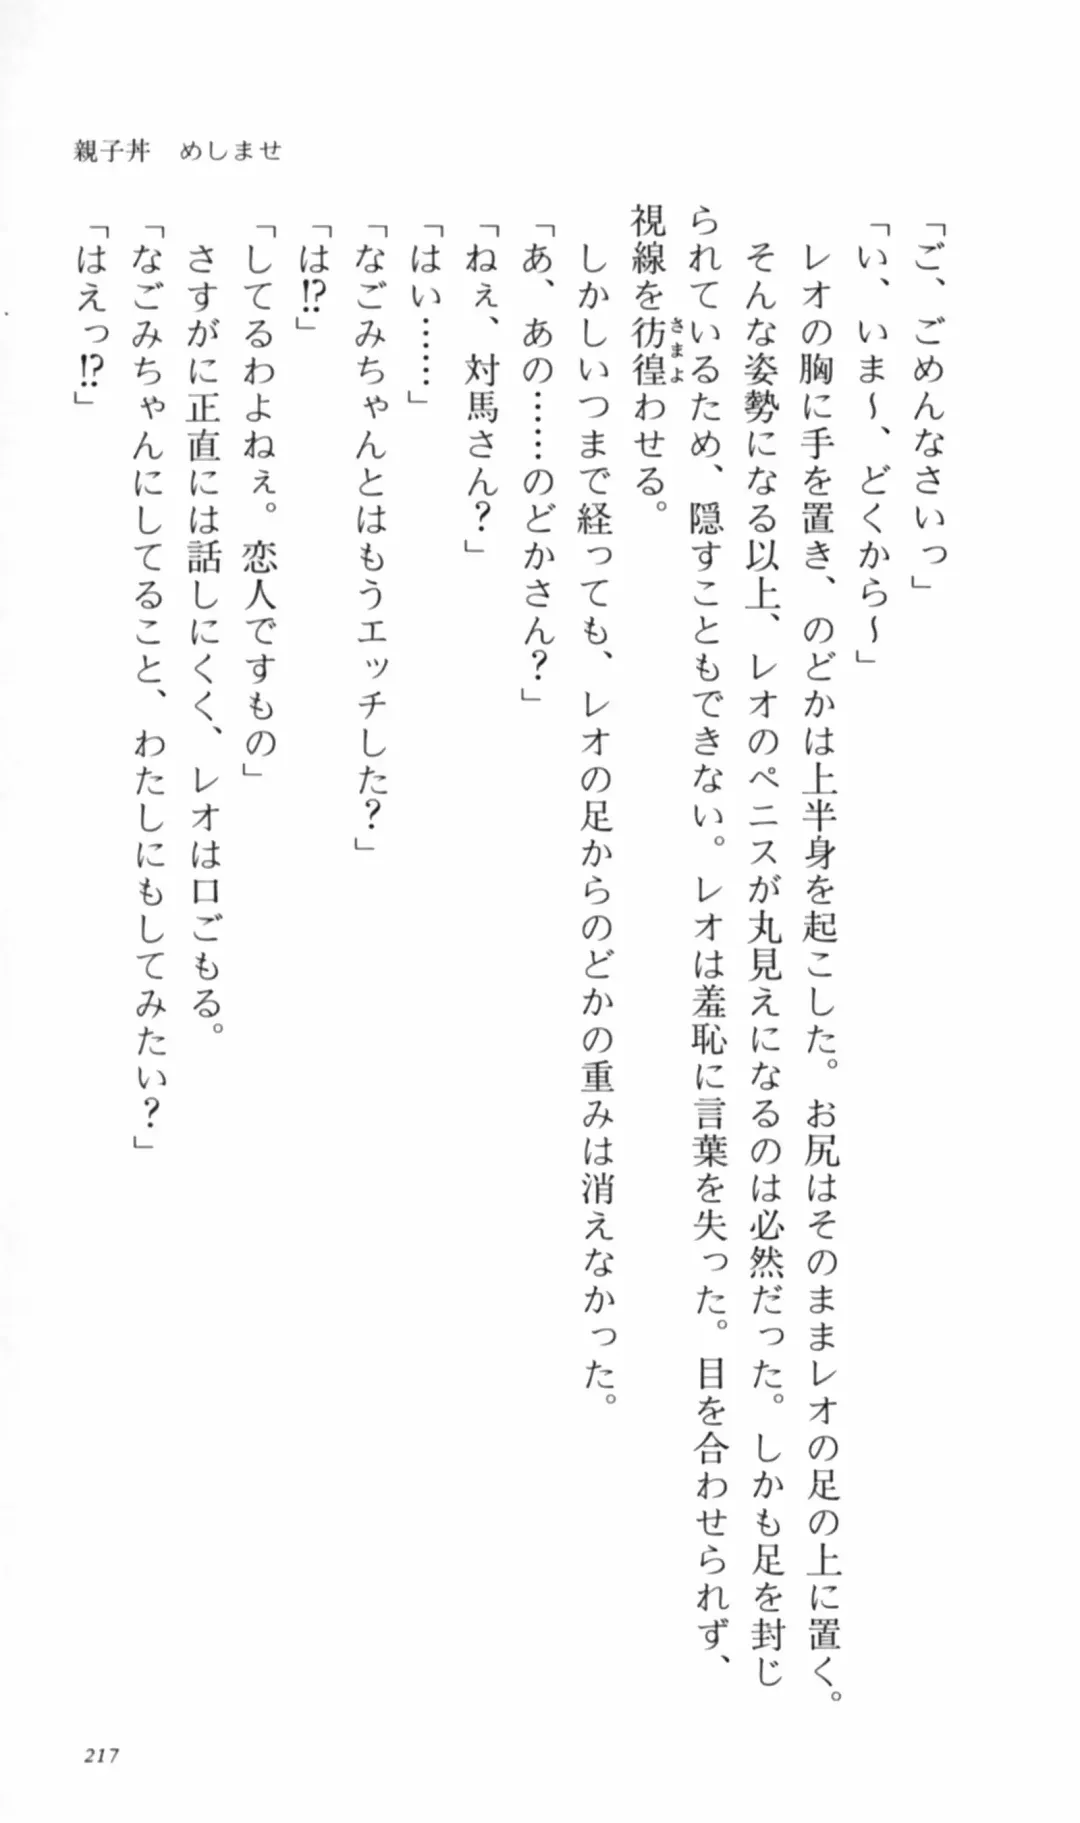 「ご、ごめんなさいっ」
「い、いま～、どくから～」
レオの胸に手を置き、のどかは上半身を起こした。お尻はそのままレオの足の上に置く。
そんな姿勢になる以上、レオのペニスが丸見えになるのは必然だった。しかも足を封じ
られているため、隠すこともできない。レオは羞恥に言葉を失った。目を合わせられず、
視線を彷徨わせる。
さまよ
しかしいつまで経っても、レオの足からのどかの重みは消えなかった。
「あ、あの……のどかさん？」
「ねぇ、対馬さん？」
「はい……」
「なごみちゃんとはもうエッチした？」
「は⁉」
「してるわよねぇ。恋人ですもの」
さすがに正直には話しにくく、レオは口ごもる。
「なごみちゃんにしてること、わたしにもしてみたい？」
「はえっ⁉」
親子丼　めしませ
217